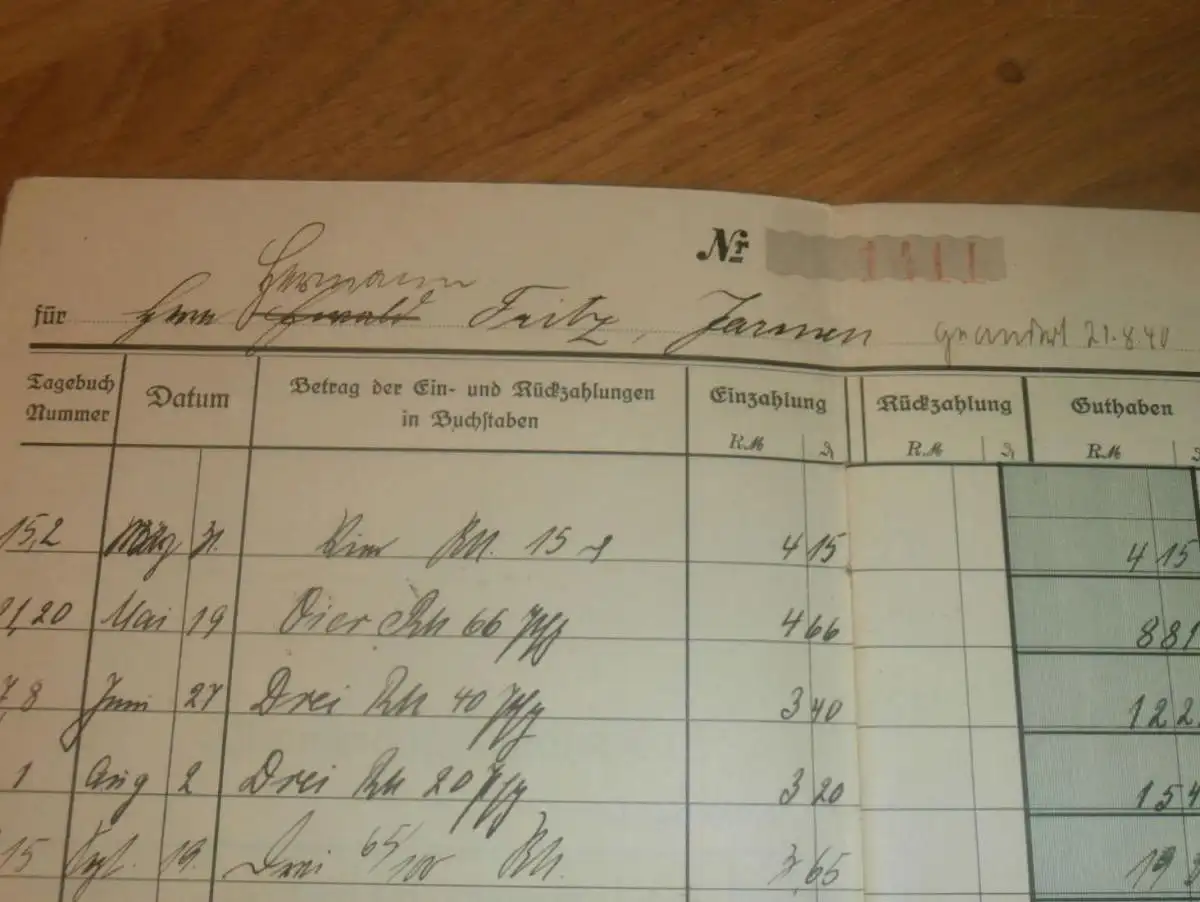 Nr 1111
Hermann
für Herrn Ewald Fritz, Jarmen geändert 21.8.40
Tagebuch Nummer Datum Betrag der Ein- und Rückzahlungen in Buchstaben Einzahlung Rückzahlung Guthaben
RM RM RM
15,2 März 31. Vier RM. 15 4 15 4 15
21,20 Mai 19 Vier RM 66 Pfg 4 66 8 81
7,8 Juni 27 Drei RM 40 Pfg 3 40 12 2
1 Aug 2 Drei RM 20 Pfg 3 20 15 4
15 Sept. 19. Drei 65/100 RM. 3,65 19